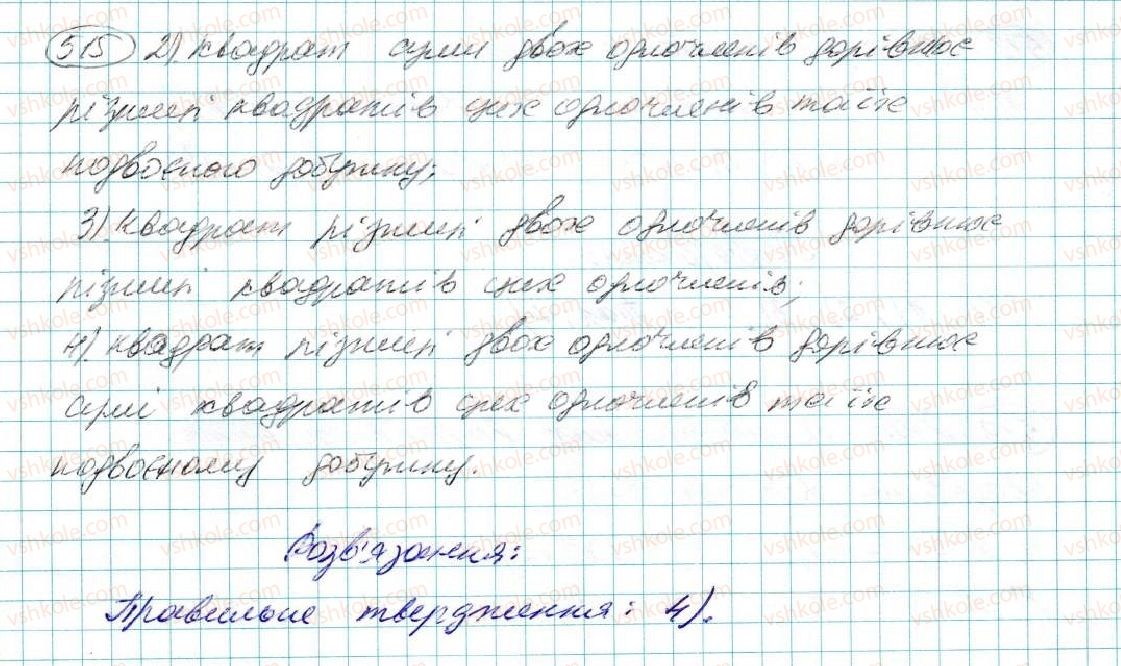 515 2). Квадрат суми двох одночленів дорівнює
різниці квадратів цих одночленів та їх
подвоєного добутку;
3). Квадрат різниці двох одночленів дорівнює
різниці квадратів цих одночленів;
4). Квадрат різниці двох одночленів дорівнює
сумі квадратів цих одночленів та їх
подвоєному добутку.
Розв'язання:
Правильне твердження: 4).